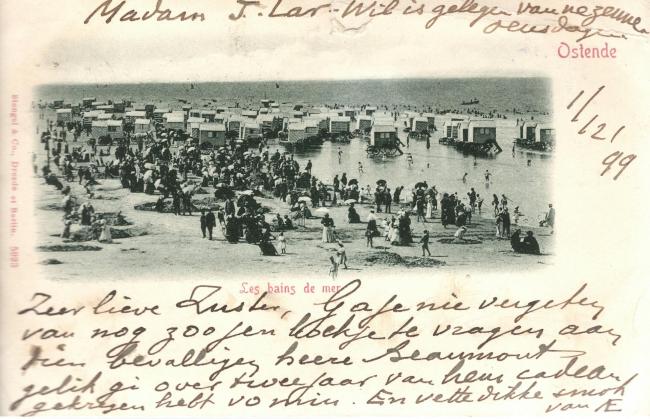 Madam J. Lar-Wil is gelegen van nezenne
densdagen
Ostende
1/12/99
Stengel & Co., Dresde et Berlin. 5023
Les bains de mer
Zeer lieve Zuster, Ga je nie vergeten
van nog zoo jen hoekje te vragen aan
dien bevalligen heere Beaumont
gelik gi over twee jaar van hem cadeau
gekregen hebt vo min. En vette dikke smok
van E